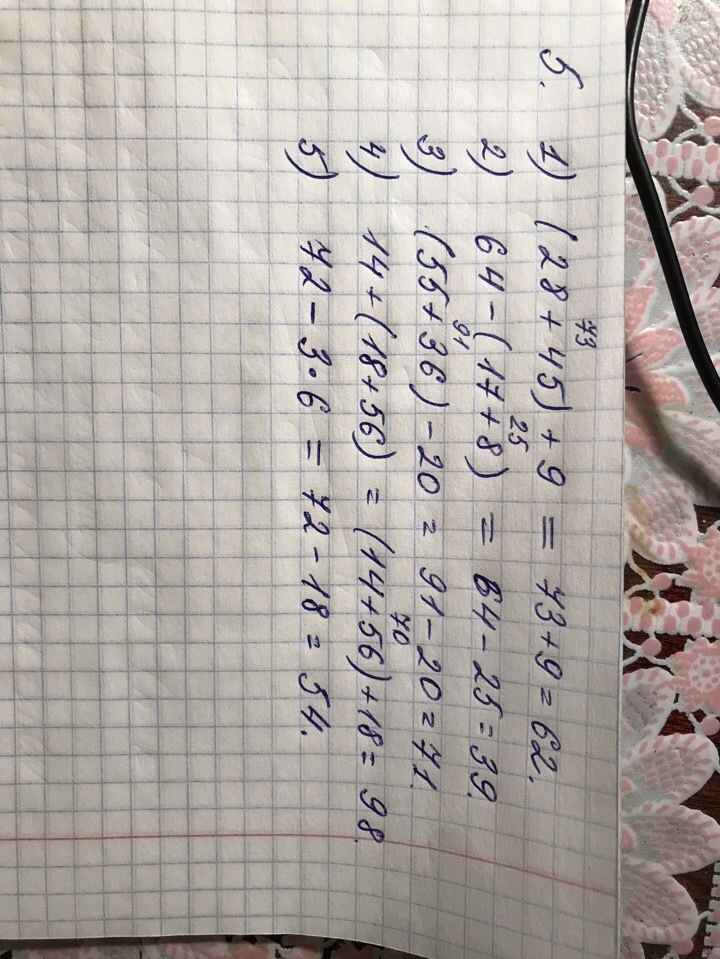 5.
73
1) (28+45)+9 = 73+9=62.
25
2) 64-(17+8) = 64-25=39.
91
3) (55+36)-20 = 91-20=71.
70
4) 14+(18+56) = (14+56)+18= 98.
5) 72-3·6 = 72-18 = 54.